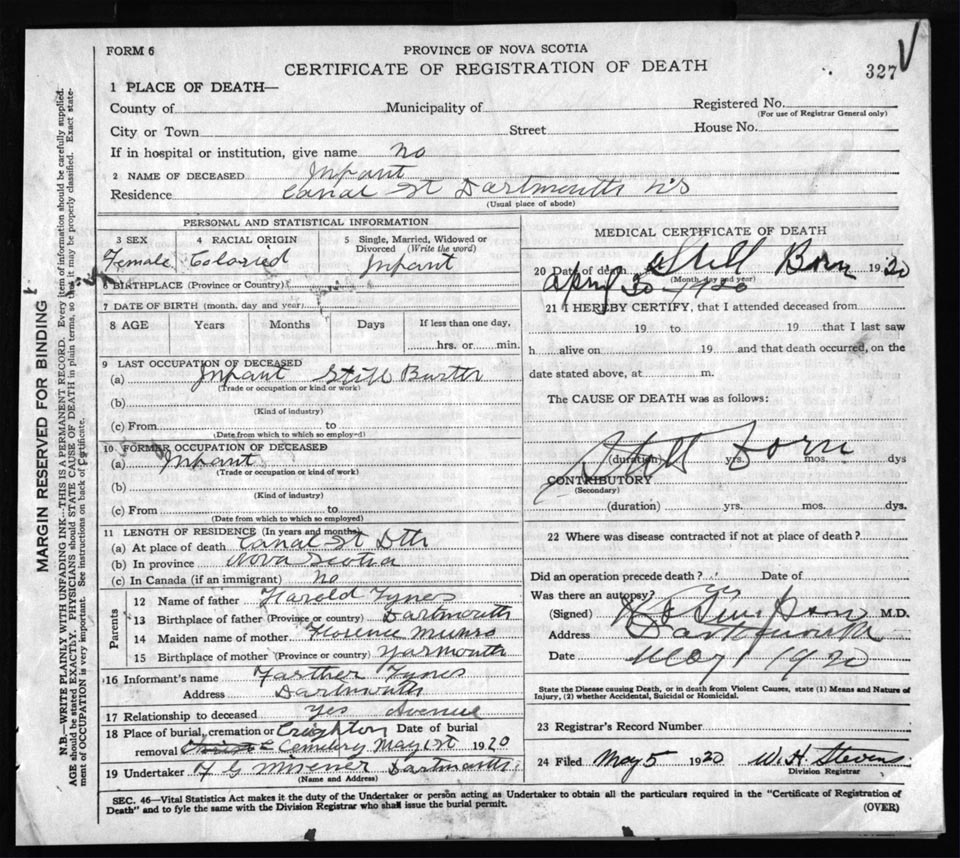 FORM 6
PROVINCE OF NOVA SCOTIA
CERTIFICATE OF REGISTRATION OF DEATH
327
1 PLACE OF DEATH—
County of Municipality of Registered No.
(For use of Registrar General only)
City or Town Street House No.
If in hospital or institution, give name no
2 NAME OF DECEASED Infant
Residence Canal St Dartmouth NS
(Usual place of abode)
PERSONAL AND STATISTICAL INFORMATION
3 SEX 4 RACIAL ORIGIN 5 Single, Married, Widowed or Divorced (Write the word)
Female Colored Infant
6 BIRTHPLACE (Province or Country)
7 DATE OF BIRTH (month, day and year)
8 AGE Years Months Days If less than one day,
hrs. or min.
9 LAST OCCUPATION OF DECEASED
(a) Infant Still
(Trade or occupation or kind or work)
(b)
(Kind of industry)
(c) From to
(Date from which to which so employed)
10 FORMER OCCUPATION OF DECEASED
(a) Infant
(Trade or occupation or kind of work)
(b)
(Kind of industry)
(c) From to
(Date from which to which so employed)
11 LENGTH OF RESIDENCE (In years and months)
(a) At place of death Canal St Dth
(b) In province Nova Scotia
(c) In Canada (if an immigrant) No
Parents
12 Name of father Harold Tynes
13 Birthplace of father (Province or country) Dartmouth
14 Maiden name of mother Florence Munro
15 Birthplace of mother (Province or country) Yarmouth
16 Informant's name Farther Tynes
Address Dartmouth
17 Relationship to deceased Yes Avenue
18 Place of burial, cremation or removal Creighton Cemetery Date of burial May 1st 1920
19 Undertaker Misener Dartmouth
(Name and Address)
MEDICAL CERTIFICATE OF DEATH
20 Date of death Still Born 1920
(Month, day and year)
April 30 1920
21 I HEREBY CERTIFY, that I attended deceased from
19 to 19 that I last saw
h alive on 19 and that death occurred, on the
date stated above, at m.
The CAUSE OF DEATH was as follows:
Still born
(duration) yrs. mos. dys
CONTRIBUTORY
(Secondary)
(duration) yrs. mos. dys.
22 Where was disease contracted if not at place of death?
Did an operation precede death? Date of
Was there an autopsy?
(Signed) M.D.
Address Dartmouth
Date May 1 1920
State the Disease causing Death, or in death from Violent Causes, state (1) Means and Nature of
Injury, (2) whether Accidental, Suicidal or Homicidal.
23 Registrar's Record Number
24 Filed May 5 1920 W. H. Stevens
Division Registrar
SEC. 46—Vital Statistics Act makes it the duty of the Undertaker or person acting as Undertaker to obtain all the particulars required in the "Certificate of Registration of
Death" and to fyle the same with the Division Registrar who shall issue the burial permit.
(OVER)
MARGIN RESERVED FOR BINDING
N.B.—WRITE PLAINLY WITH UNFADING INK—THIS IS A PERMANENT RECORD. Every item of information should be carefully supplied.
AGE should be stated EXACTLY. PHYSICIANS should STATE CAUSE OF DEATH in plain terms, so that it may be properly classified. Exact statement of OCCUPATION is very important. See instructions on back of Certificate.